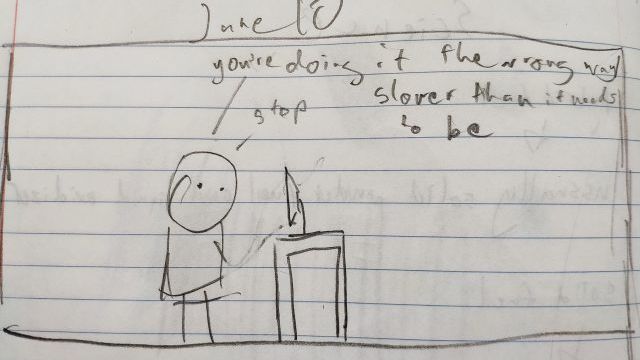 June 10
you're doing it the wrong way
slower than it needs
to be
stop